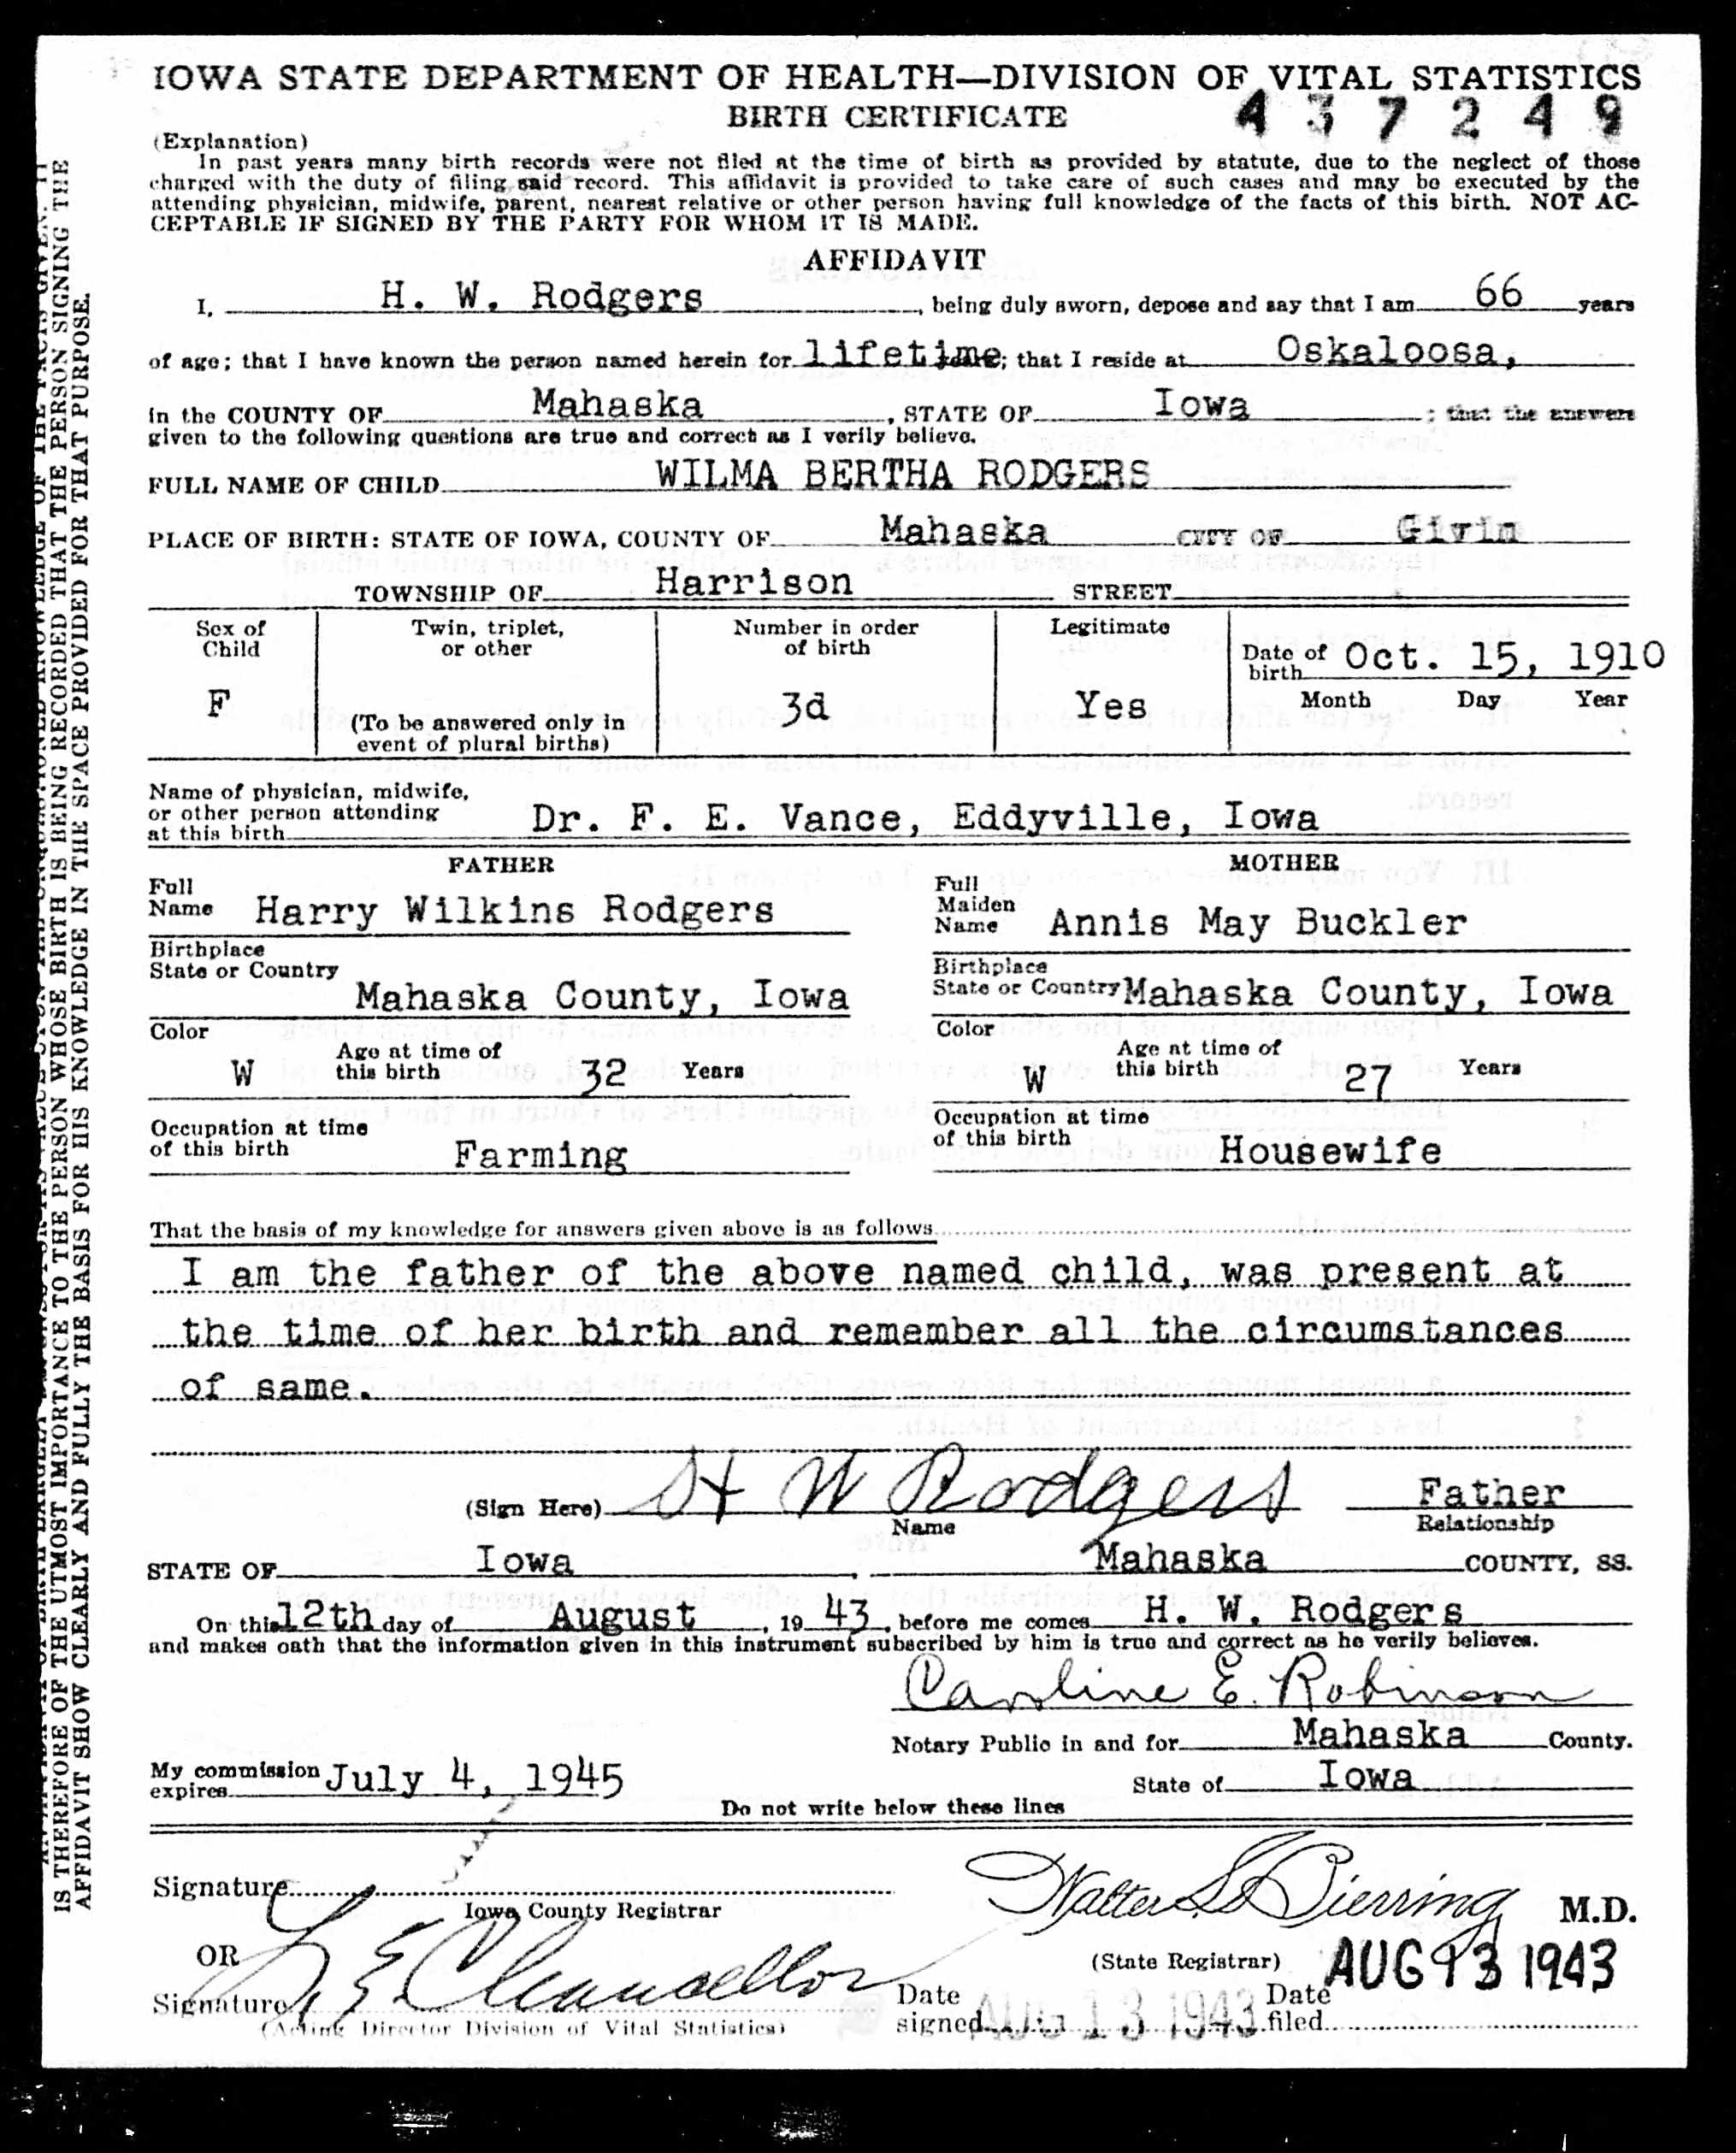 IOWA STATE DEPARTMENT OF HEALTH—DIVISION OF VITAL STATISTICS
BIRTH CERTIFICATE
437249
(Explanation)
In past years many birth records were not filed at the time of birth as provided by statute, due to the neglect of those
charged with the duty of filing said record. This affidavit is provided to take care of such cases and may be executed by the
attending physician, midwife, parent, nearest relative or other person having full knowledge of the facts of this birth. NOT AC-
CEPTABLE IF SIGNED BY THE PARTY FOR WHOM IT IS MADE.
AFFIDAVIT
I, H. W. Rodgers, being duly sworn, depose and say that I am 66 years
of age; that I have known the person named herein for lifetime; that I reside at Oskaloosa,
in the COUNTY OF Mahaska, STATE OF Iowa; that the answers
given to the following questions are true and correct as I verily believe.
FULL NAME OF CHILD WILMA BERTHA RODGERS
PLACE OF BIRTH: STATE OF IOWA, COUNTY OF Mahaska CITY OF Givin
TOWNSHIP OF Harrison STREET
Sex of Child F
Twin, triplet, or other
(To be answered only in event of plural births)
Number in order of birth 3d
Legitimate Yes
Date of birth Oct. 15, 1910
Month Day Year
Name of physician, midwife,
or other person attending
at this birth Dr. F. E. Vance, Eddyville, Iowa
FATHER
Full Name Harry Wilkins Rodgers
Birthplace
State or Country Mahaska County, Iowa
Color W Age at time of this birth 32 Years
Occupation at time of this birth Farming
MOTHER
Full Maiden Name Annis May Buckler
Birthplace
State or Country Mahaska County, Iowa
Color W Age at time of this birth 27 Years
Occupation at time of this birth Housewife
That the basis of my knowledge for answers given above is as follows
I am the father of the above named child, was present at
the time of her birth and remember all the circumstances
of same.
(Sign Here) H W Rodgers Father
Name Relationship
STATE OF Iowa, Mahaska COUNTY, SS.
On this 12th day of August, 19 43, before me comes H. W. Rodgers
and makes oath that the information given in this instrument subscribed by him is true and correct as he verily believes.
Caroline E. Robinson
Notary Public in and for Mahaska County.
My commission expires July 4, 1945
State of Iowa
Do not write below these lines
Signature
Iowa County Registrar
Walter L Bierring M.D.
(State Registrar)
OR
Signature L E Chancellor
(Acting Director Division of Vital Statistics)
Date signed AUG 13 1943
Date filed AUG 13 1943
IS THEREFORE OF THE UTMOST IMPORTANCE TO THE PERSON WHOSE BIRTH IS BEING RECORDED THAT THE PERSON SIGNING THE
AFFIDAVIT SHOW CLEARLY AND FULLY THE BASIS FOR HIS KNOWLEDGE IN THE SPACE PROVIDED FOR THAT PURPOSE.